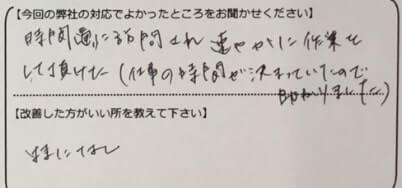 【今回の弊社の対応でよかったところをお聞かせください】
時間通りに訪問され速やかに作業を
して頂けた(仕事の時間が決まっていたので
助かりました)
【改善した方がいい所を教えて下さい】
特になし